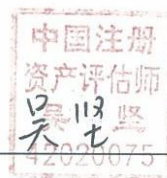 中国注册
资产评估师
吴坚
吴坚
42020075